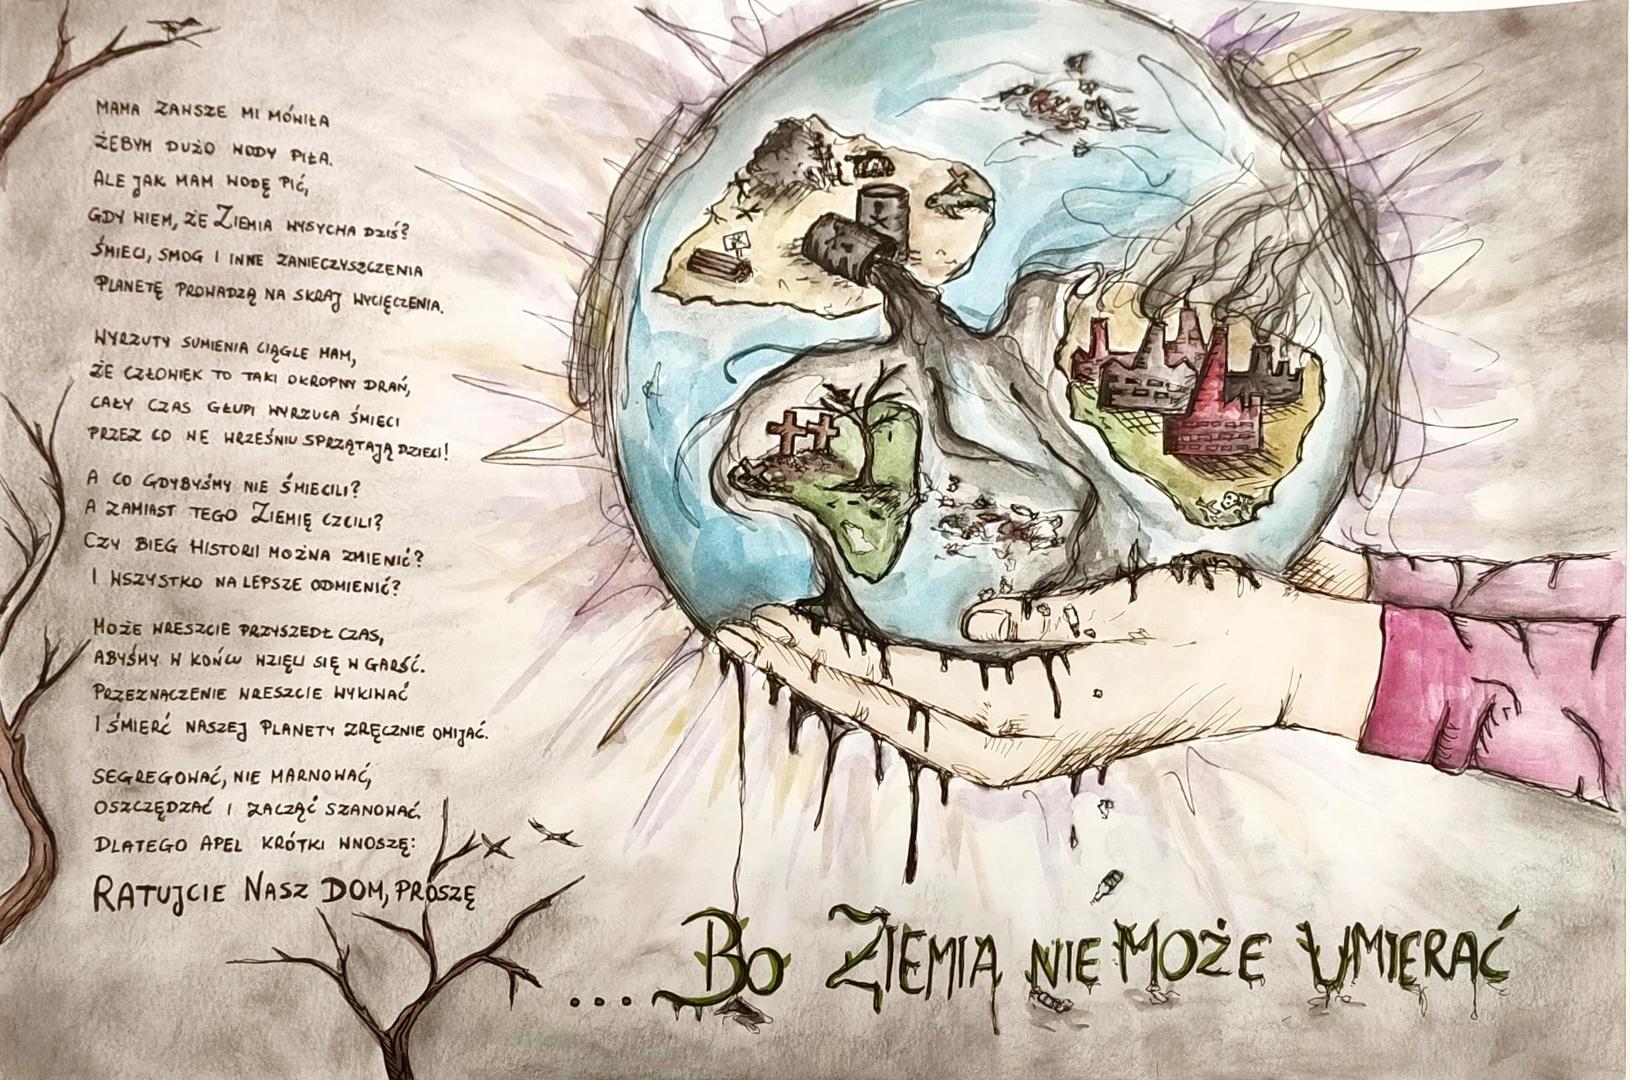 MAMA ZAWSZE MI MÓWIŁA
ŻEBYM DUŻO WODY PIŁA.
ALE JAK MAM WODĘ PIĆ,
GDY WIEM, ŻE ZIEMIA WYSYCHA DZIŚ?
ŚMIECI, SMOG I INNE ZANIECZYSZCZENIA
PLANETĘ PROWADZĄ NA SKRAJ WYCIĘCZENIA.
WYRZUTY SUMIENIA CIĄGLE MAM,
ŻE CZŁOWIEK TO TAKI OKROPNY DRAŃ,
CAŁY CZAS GŁUPI WYRZUCA ŚMIECI
PRZEZ CO WE WRZEŚNIU SPRZĄTAJĄ DZIECI!
A CO GDYBYŚMY NIE ŚMIECILI?
A ZAMIAST TEGO ZIEMIĘ CZCILI?
CZY BIEG HISTORII MOŻNA ZMIENIĆ?
I WSZYSTKO NA LEPSZE ODMIENIĆ?
MOŻE WRESZCIE PRZYSZEDŁ CZAS,
ABYŚMY W KOŃCU WZIĘLI SIĘ W GARŚĆ.
PRZEZNACZENIE WRESZCIE WYKIWAĆ
I ŚMIERĆ NASZEJ PLANETY ZRĘCZNIE OMIJAĆ.
SEGREGOWAĆ, NIE MARNOWAĆ,
OSZCZĘDZAĆ I ZACZĄĆ SZANOWAĆ.
DLATEGO APEL KRÓTKI WNOSZĘ:
RATUJCIE NASZ DOM, PROSZĘ
... BO ZIEMIA NIE MOŻE UMIERAĆ